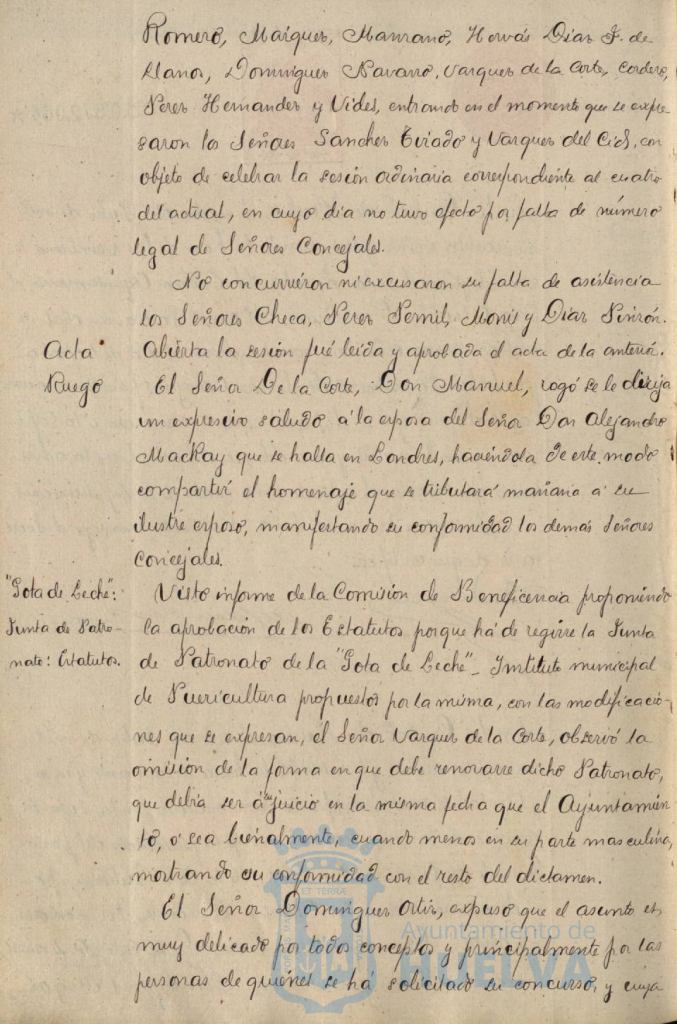 Romero, Marques, Manzano, Hervás Dias F. de
Llanos, Domingues Navarro, Varques de la Corte, Cordero,
Peres Hernandes y Vides, entrando en el momento que se expre-
saron los Señores Sanches Tirado y Varques del Cid, con
objeto de celebrar la sesión ordinaria correspondiente al cuatro
del actual, en cuyo dia no tuvo efecto por falta de número
legal de Señores Concejales.
No concurrieron ni excusaron su falta de asistencia
los Señores Checa, Peres Pernil, Monis y Dias Pinzón.
Acta
Abierta la sesión fué leida y aprobada el acta de la anterior.
Ruego
El Señor De la Corte, Don Manuel, rogó se le dirija
un expresivo saludo á la esposa del Señor Don Alejandro
MacKay que se halla en Londres, haciéndola de este modo
compartir el homenaje que se tributará mañana á su
ilustre esposo, manifestando su conformidad los demás Señores
Concejales.
"Gota de Leche":
Junta de Patro-
nato: Estatutos.
Visto informe de la Comisión de Beneficencia proponiendo
la aprobación de los Estatutos porque há de regirse la Junta
de Patronato de la "Gota de Leche"- Instituto municipal
de Puericultura propuestos por la misma, con las modificacio-
nes que se expresan, el Señor Varques de la Corte, observó la
omisión de la forma en que debe renovarse dicho Patronato,
que debia ser á su juicio en la misma fecha que el Ayuntamien-
to, ó sea bienalmente, cuando menos en su parte masculina,
mostrando su conformidad con el resto del dictamen.
El Señor Domingues Ortiz, expuso que el asunto es
muy delicado por todos conceptos y principalmente por las
personas de quiénes se há solicitado su concurso, y cuya
Ayuntamiento de
HUELVA